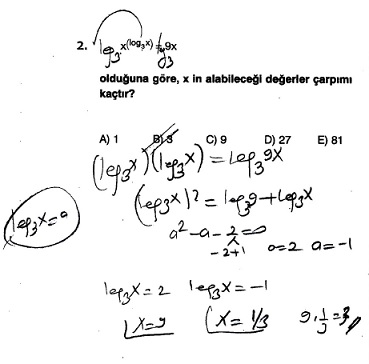 2. log₃ x^(log₃x) = log₃ 9x
olduğuna göre, x in alabileceği değerler çarpımı
kaçtır?
A) 1 B) 3 C) 9 D) 27 E) 81
(log₃x)(log₃x) = log₃9x
(log₃x)² = log₃9 + log₃x
log₃x = a
a² - a - 2 = 0
-2 +1 a = 2 a = -1
log₃x = 2 log₃x = -1
x = 9 x = 1/3 9 . 1/3 = 3